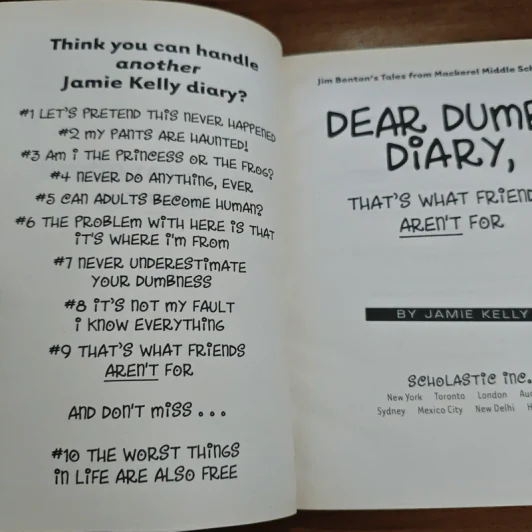 Think you can handle
another
Jamie Kelly diary?
#1 LET'S PRETEND THIS NEVER HAPPENED
#2 MY PANTS ARE HAUNTED!
#3 AM I THE PRINCESS OR THE FROG?
#4 NEVER DO ANYTHING, EVER
#5 CAN ADULTS BECOME HUMAN?
#6 THE PROBLEM WITH HERE IS THAT
IT'S WHERE I'M FROM
#7 NEVER UNDERESTIMATE
YOUR DUMBNESS
#8 IT'S NOT MY FAULT
I KNOW EVERYTHING
#9 THAT'S WHAT FRIENDS
AREN'T FOR
AND DON'T MISS...
#10 THE WORST THINGS
IN LIFE ARE ALSO FREE
Jim Benton's Tales from Mackerel Middle
DEAR
DIARY,
THAT'S WHAT
AREN'T FOR
BY JAMIE KELLY
SCHOLASTIC INC.
New York Toronto London
Sydney Mexico City New Delhi